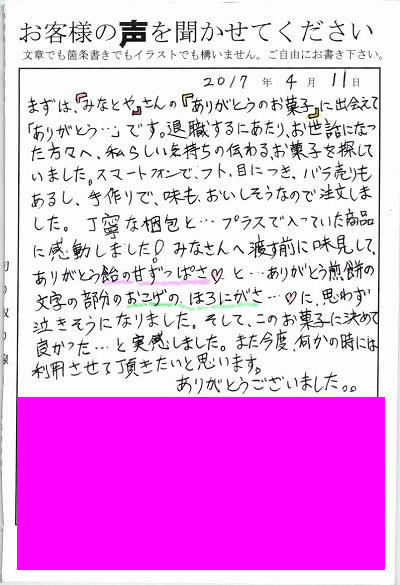 お客様の声を聞かせてください
文章でも箇条書きでもイラストでも構いません。ご自由にお書き下さい。
2017年4月11日
まずは、『みなとや』さんの『ありがとうのお菓子』に出会えて
「ありがとう…」です。退職するにあたり、お世話になっ
た方々へ、私らしい気持ちの伝わるお菓子を探して
いました。スマートフォンで、フト、目につき、バラ売りも
あるし、手作りで、味も、おいしそうなので注文しま
した。丁寧な梱包と…プラスで入っていた商品
に感動しました!みなさんへ渡す前に味見して、
ありがとう飴の甘ずっぱさ♡と…ありがとう煎餅の
文字の部分のおこげの、ほろにがさ…♡に、思わず
泣きそうになりました。そして、このお菓子に決めて
良かった…と実感しました。また今度、何かの時には
利用させて頂きたいと思います。
ありがとうございました。。